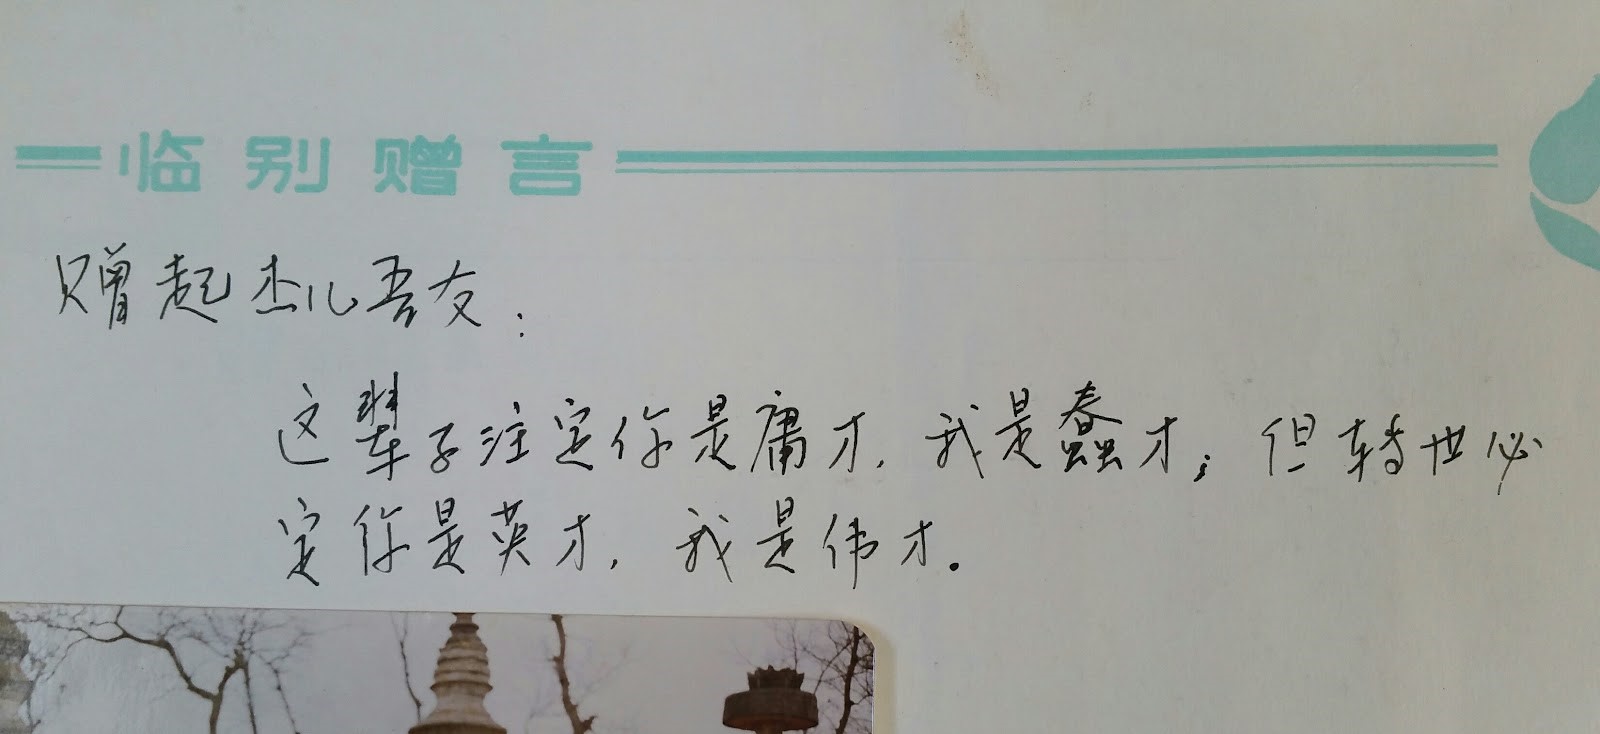 临别赠言
赠起杰儿吾友：
这辈子注定你是庸才，我是蠢才；但转世必
定你是英才，我是伟才。